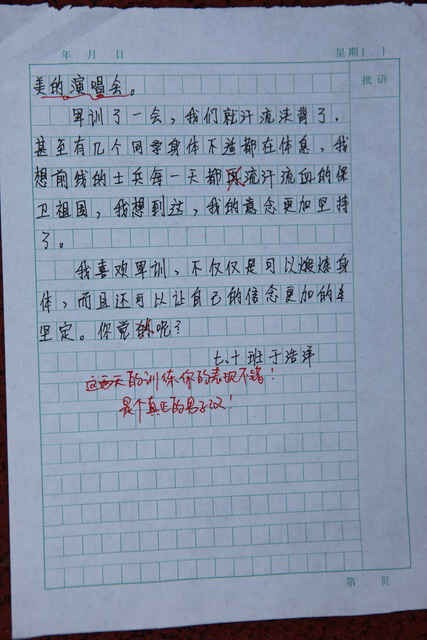 年 月 日 星期( )
批语
美的演唱会。
军训了一会，我们就汗流浃背了，
甚至有几个同学身体不适都在休息，我
想前线的士兵每一天都 流汗流血的保
卫祖国，我想到这，我的意念更加坚持
了。
我喜欢军训，不仅仅是可以煅炼身
体，而且还可以让自己的信念更加的
坚定。你觉 呢？
七、十班于浩洋
这两天的训练你的表现不错！
是个真正的男子汉！
第 页